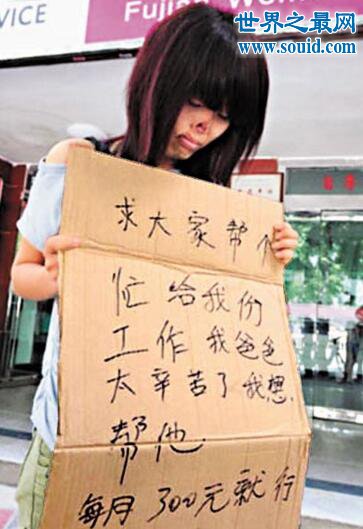 VICE
Fujian Wom
世界之最网
www.souid.com
求大家帮个
忙给我份
工作我爸爸
太辛苦了我想
帮他
每月300元就行